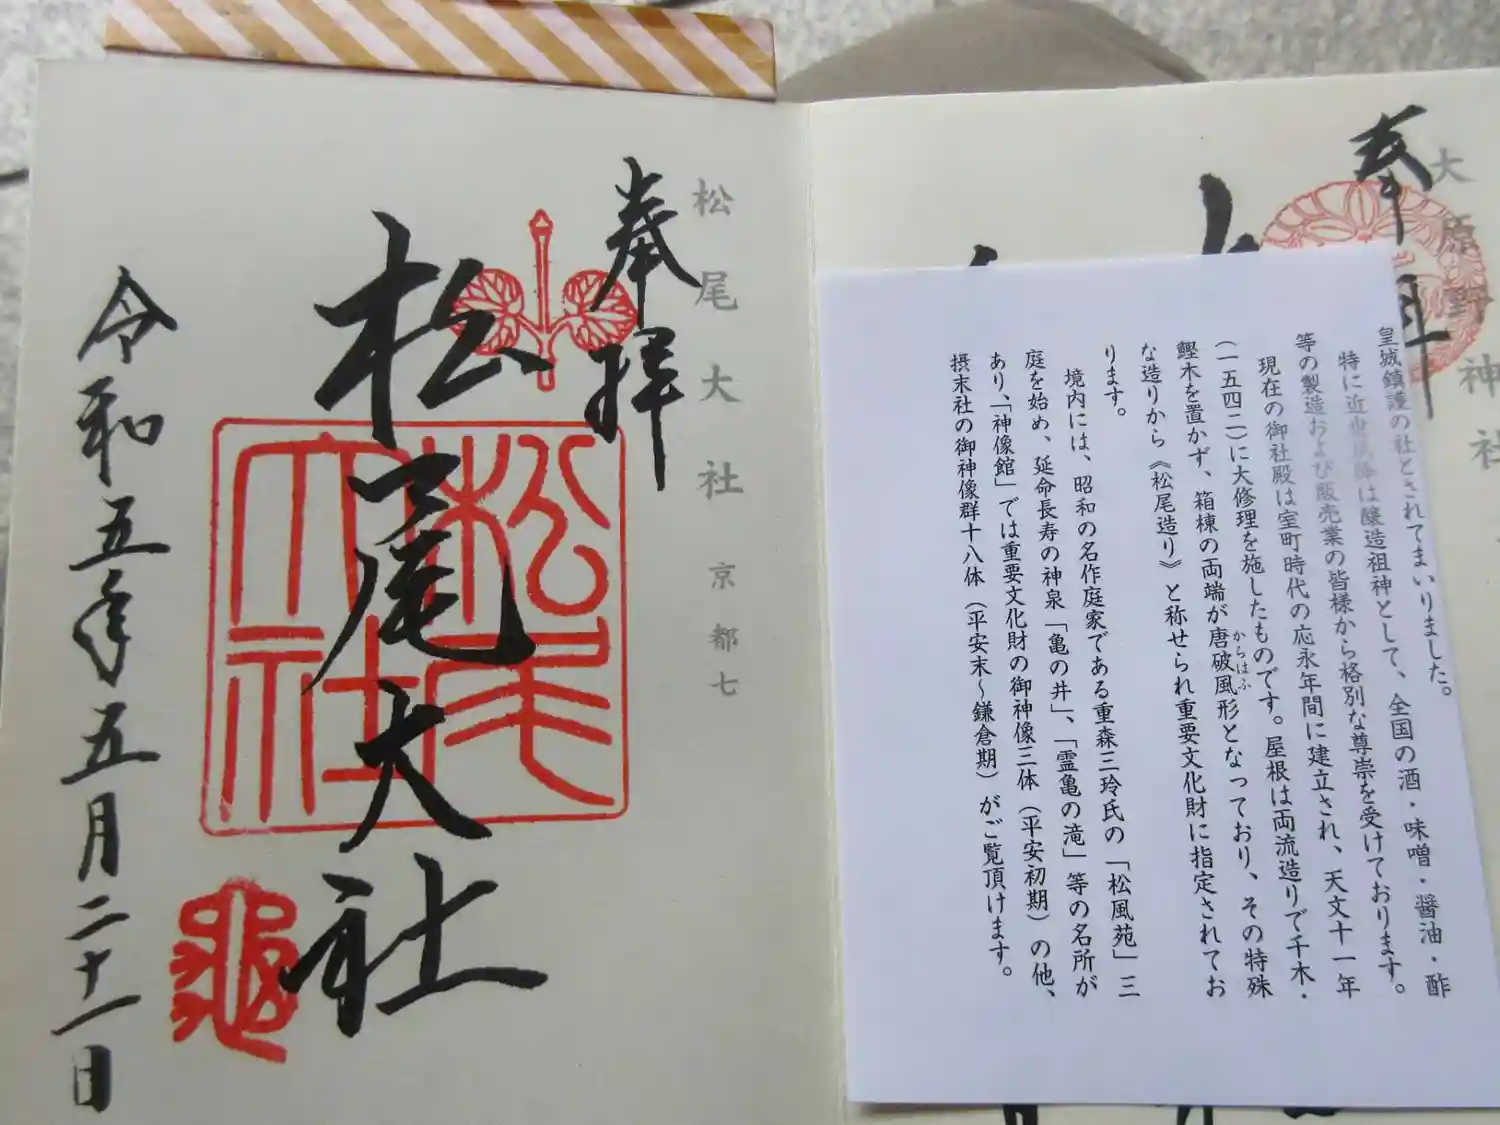 奉
大原野神社
皇城鎮護の社とされてまいりました。
特に近世以降は醸造祖神として、全国の酒・味噌・醤油・酢
等の製造および販売業の皆様から格別な尊崇を受けております。
現在の御社殿は室町時代の応永年間に建立され、天文十一年
(一五四二)に大修理を施したものです。屋根は両流造りで千木・
鰹木を置かず、箱棟の両端が唐破風形となっており、その特殊
からはふ
な造りから《松尾造り》と称せられ重要文化財に指定されてお
ります。
境内には、昭和の名作庭家である重森三玲氏の「松風苑」三
庭を始め、延命長寿の神泉「亀の井」、「霊亀の滝」等の名所が
あり、「神像館」では重要文化財の御神像三体(平安初期)の他、
摂末社の御神像群十八体(平安末~鎌倉期)がご覧頂けます。
松尾大社 京都七
奉拝
松尾大社
松尾大社
亀
令和五年五月二十一日